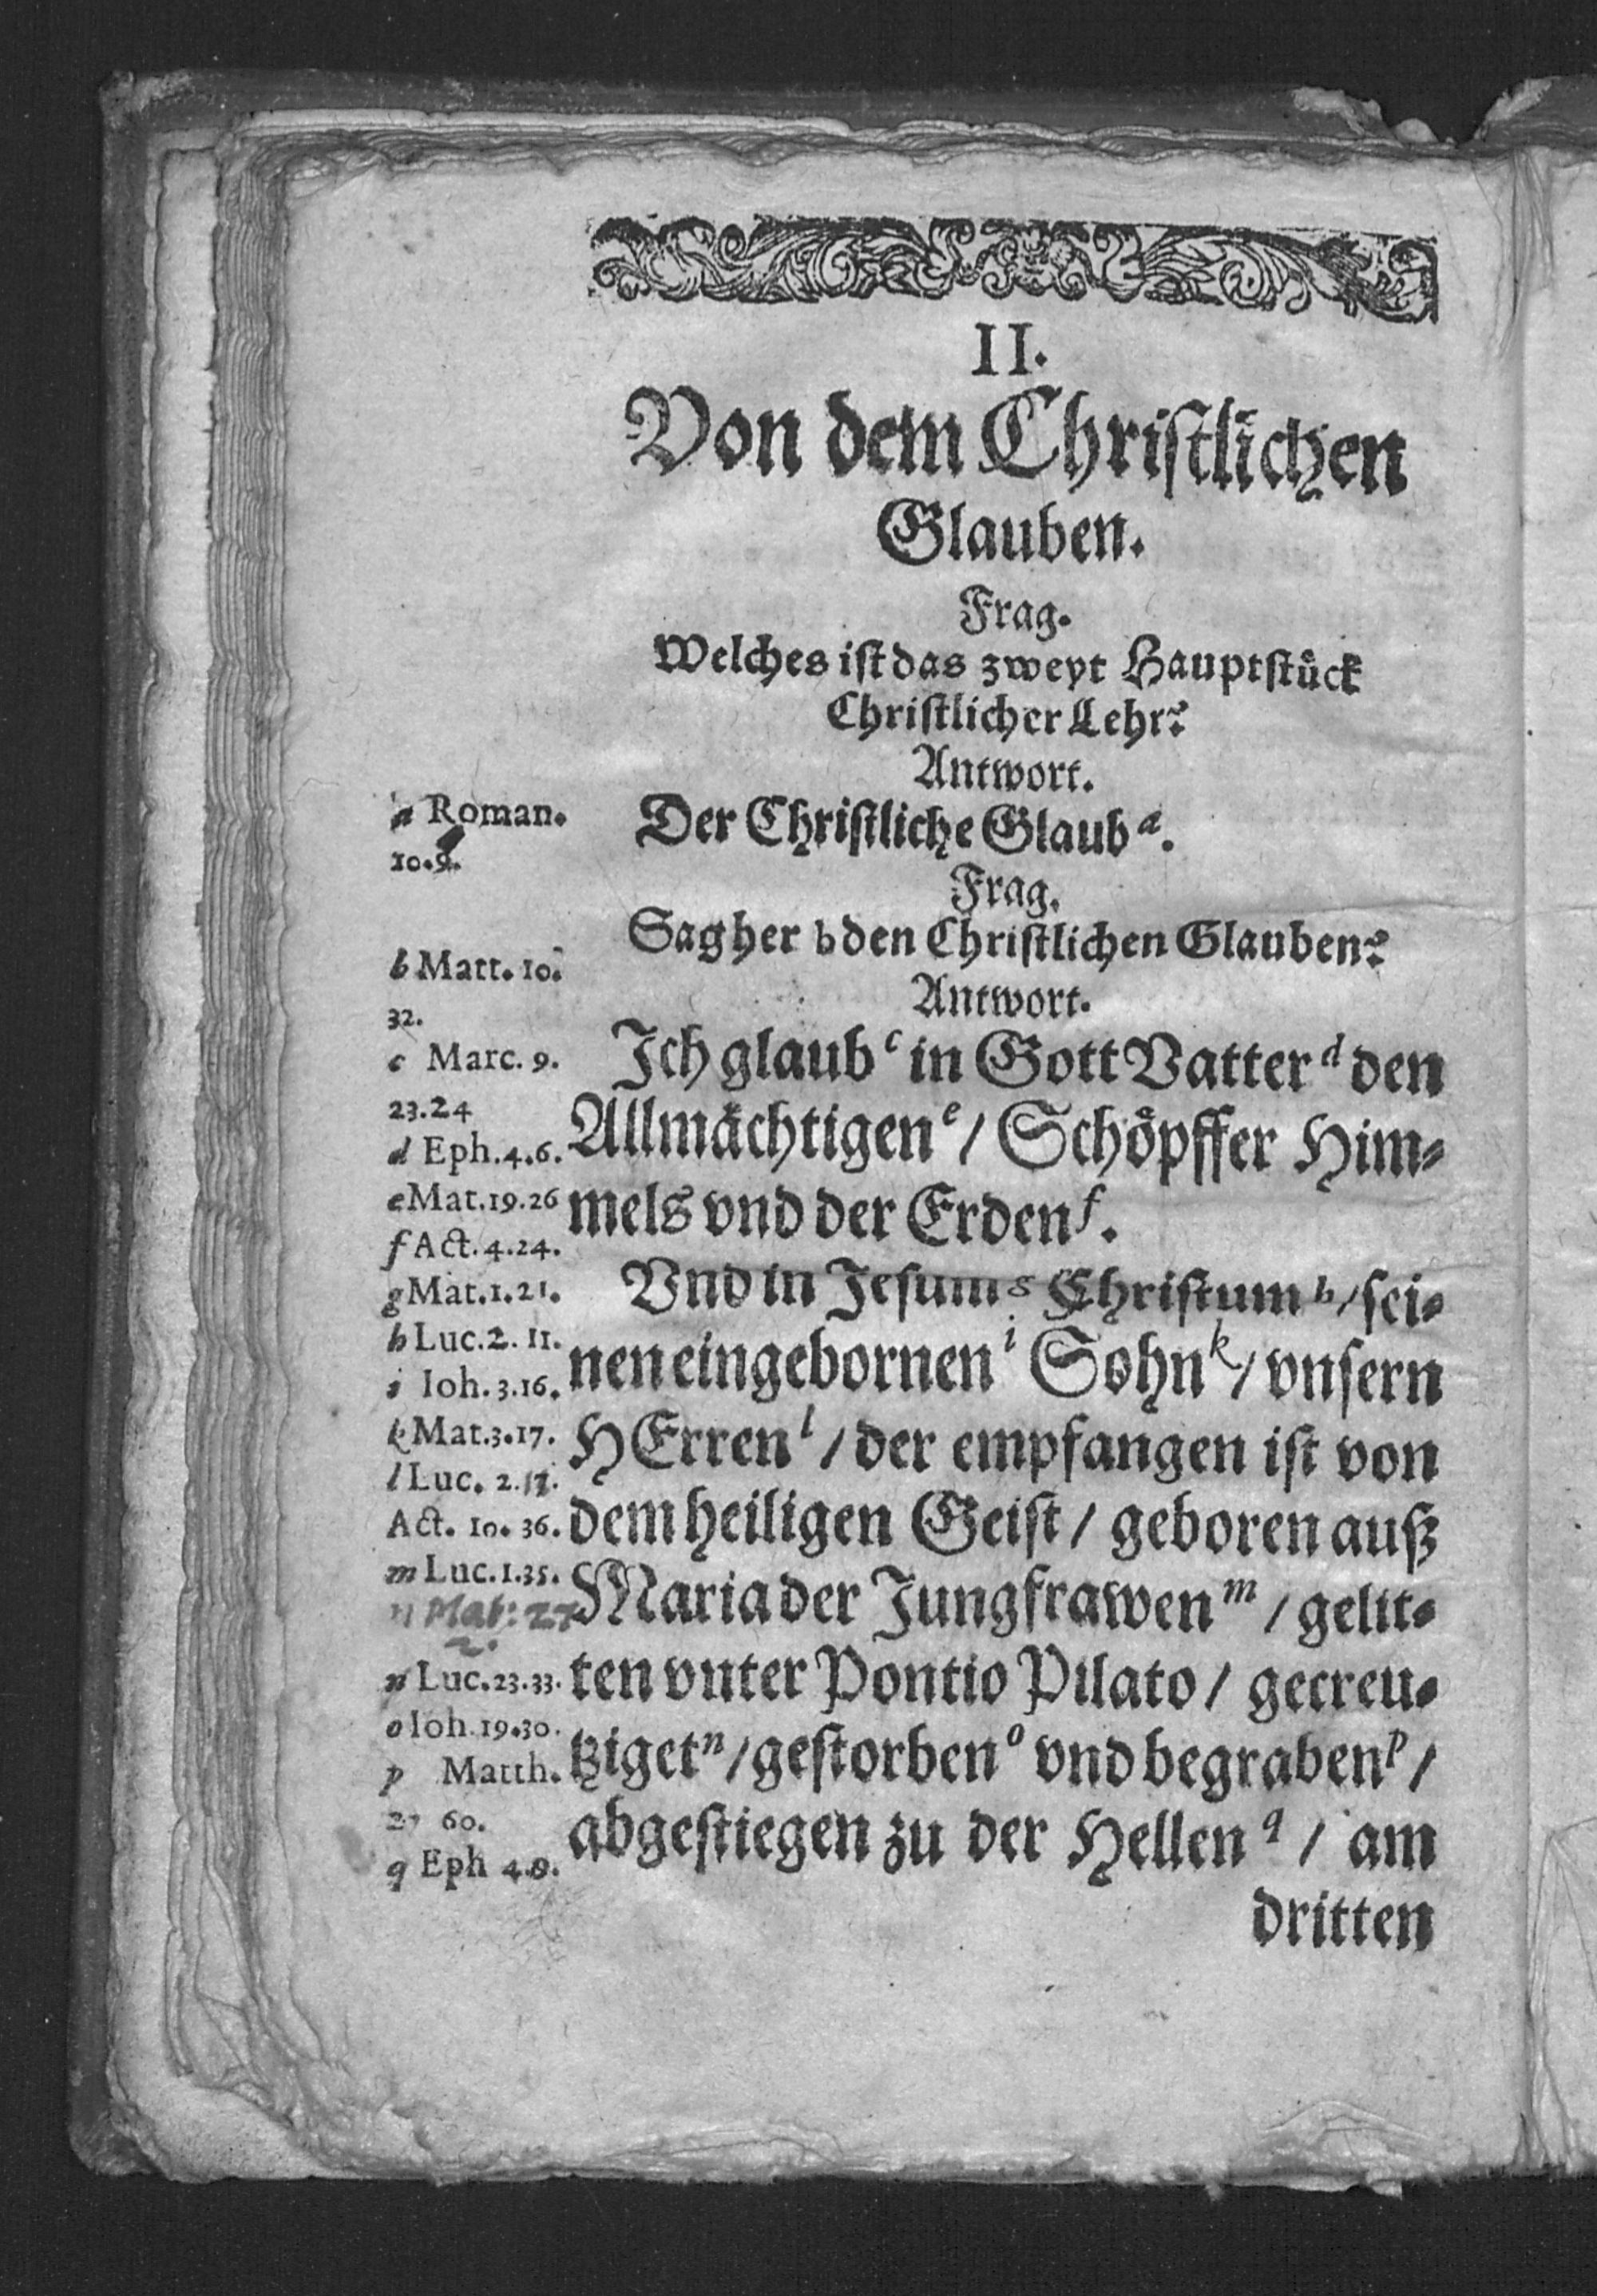 II.
Von dem Christlichen
Glauben.
Frag.
Welches ist das zweyt Hauptstuͤck
Christlicher Lehr?
Antwort.
Der Christliche Glaub a.
Frag.
Sag her b den Christlichen Glauben?
Antwort.
Ich glaub c in Gott Vatter d den
Allmaͤchtigen e / Schoͤpffer Him⸗
mels vnd der Erden f.
Vnd in Jesum g Christum h / sei⸗
nen eingebornen i Sohn k / vnsern
HErren l / der empfangen ist von
dem heiligen Geist / geboren auß
Maria der Jungfrawen m / gelit⸗
ten vnter Pontio Pilato / gecreu⸗
tziget n / gestorben o vnd begraben p /
abgestiegen zu der Hellen q / am
dritten
a Roman.
10.9.
b Matt. 10.
32.
c Marc. 9.
23.24
d Eph. 4.6.
e Mat. 19.26
f Act. 4.24.
g Mat. 1.21.
h Luc. 2. 11.
i Ioh. 3.16.
k Mat. 3.17.
l Luc. 2.
Act. 10. 36.
m Luc. 1.35.
n Mat: 27
2.
n Luc. 23.33.
o Ioh. 19.30.
p Matth.
27 60.
q Eph 4.